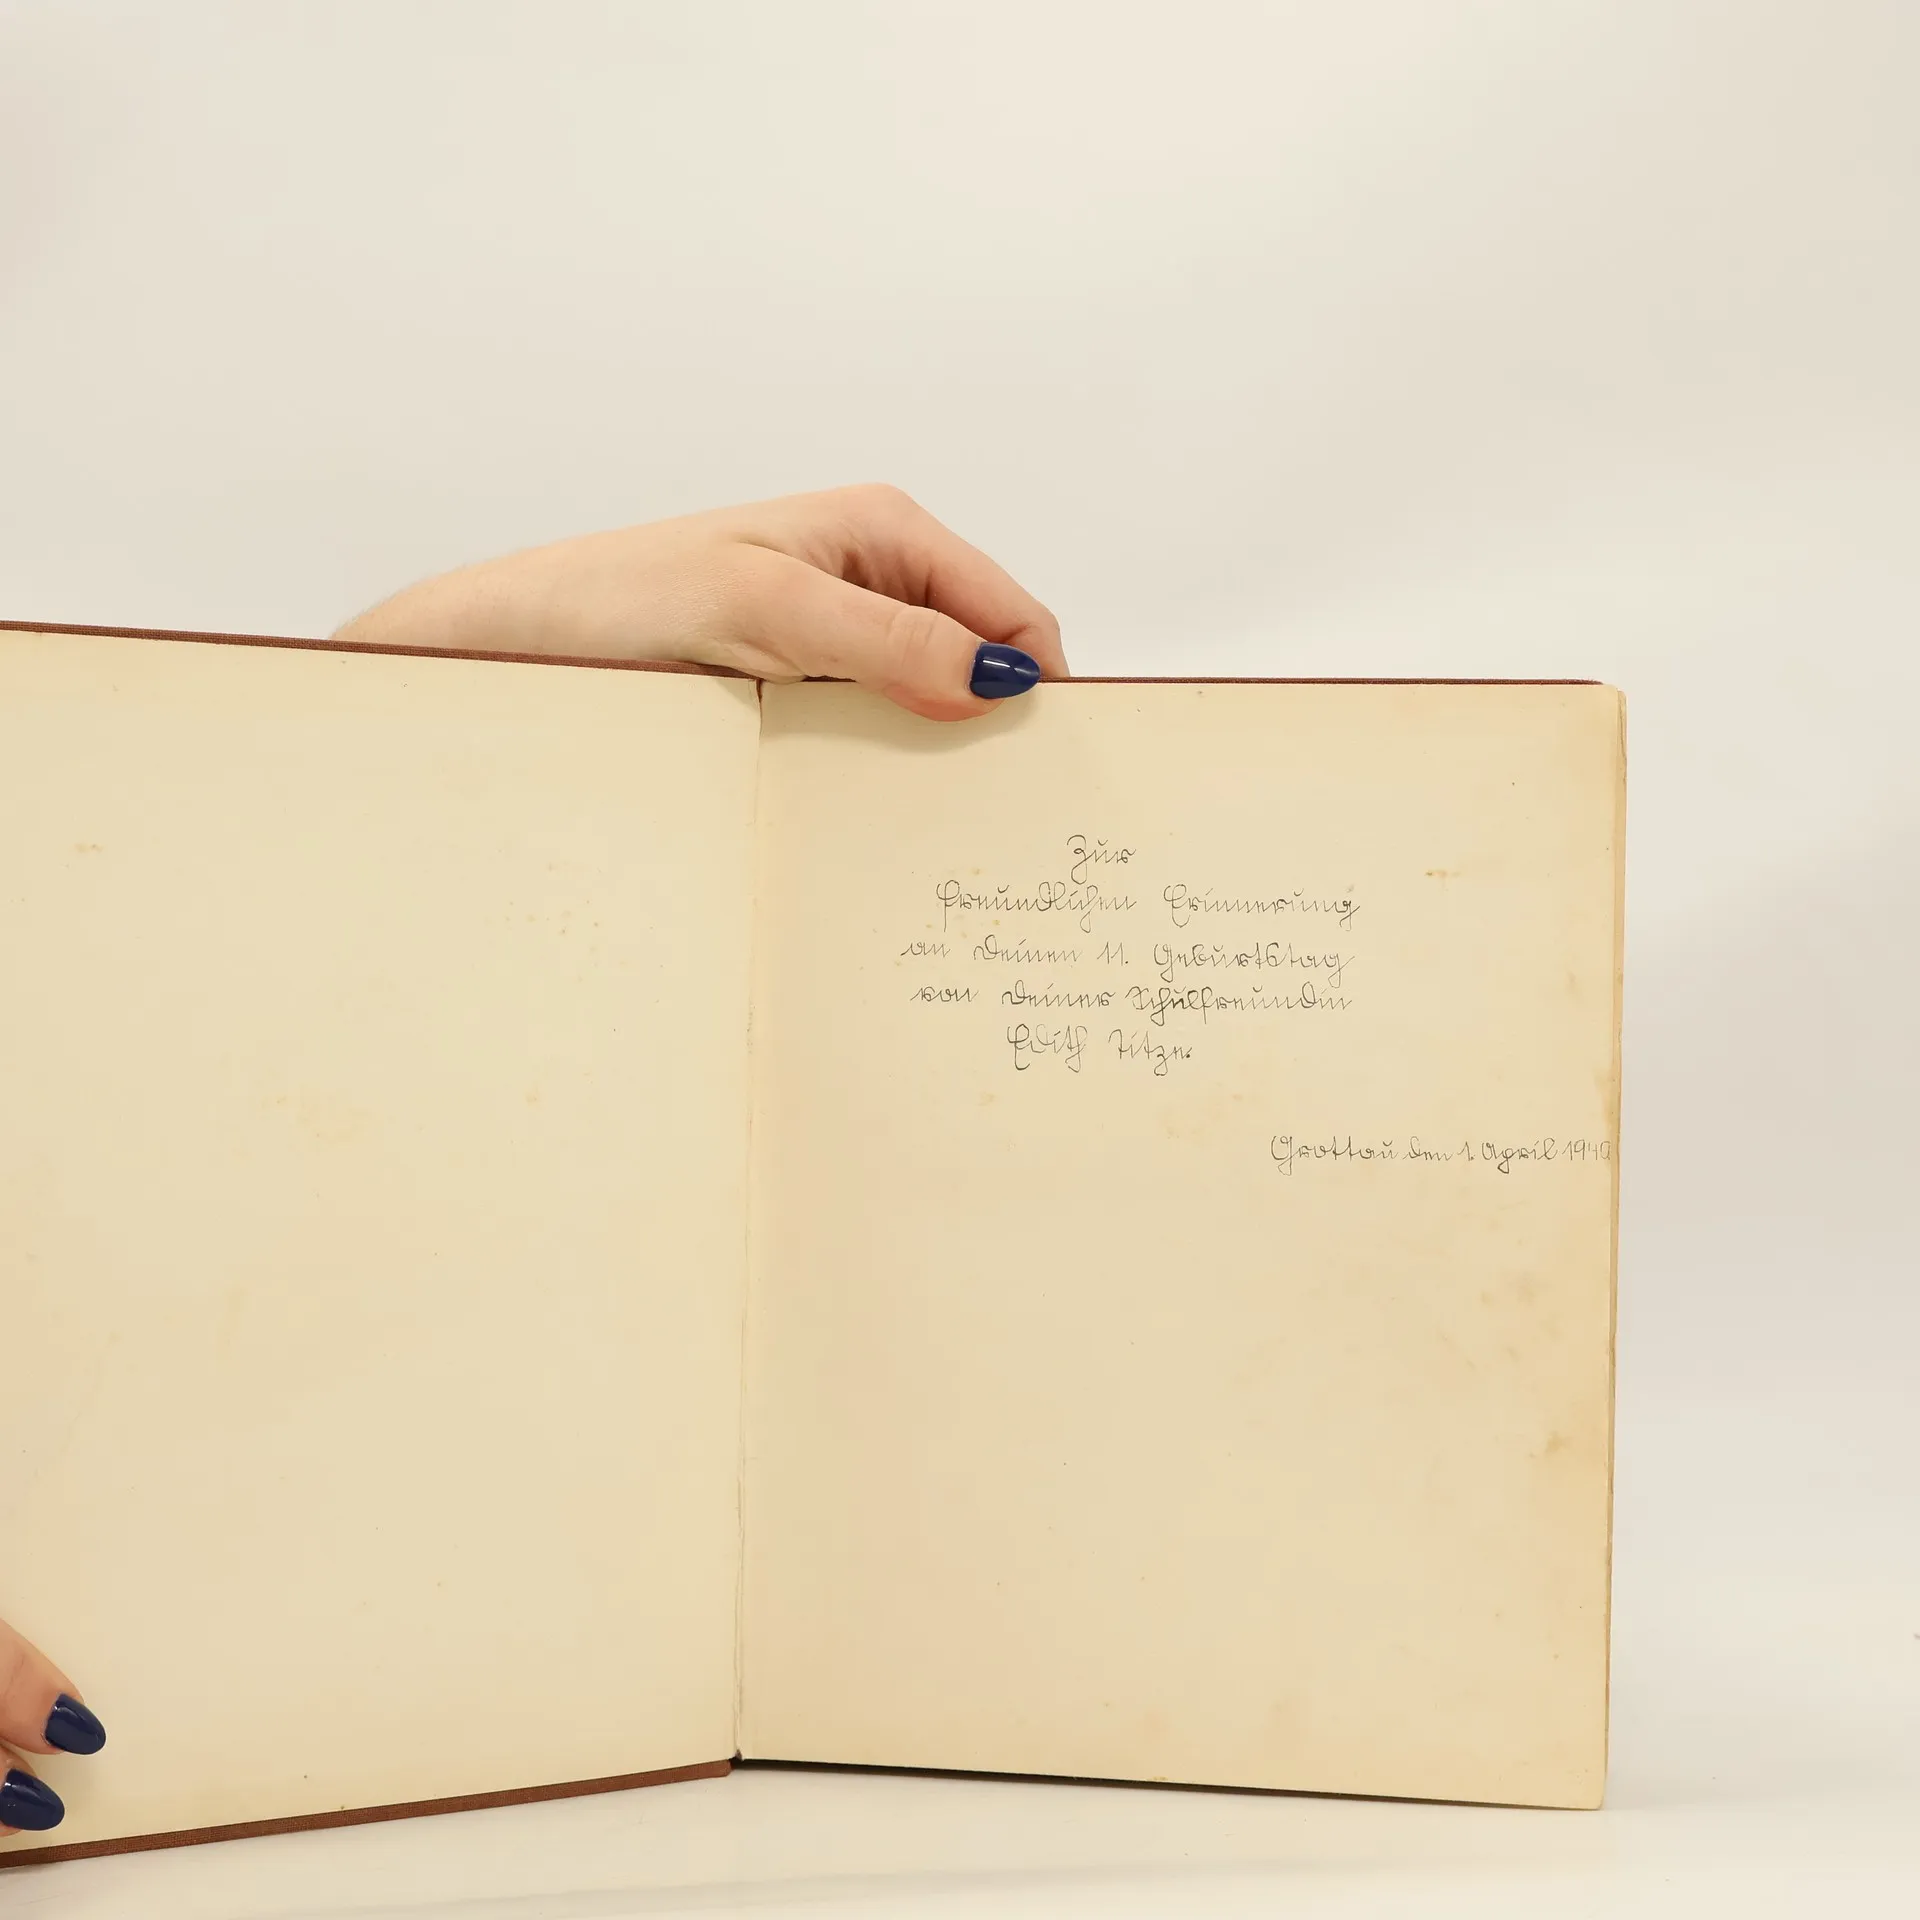 Zur
freundlichen Erinnerung
an Deinen 11. Geburtstag
von Deiner Schulfreundin
Edith Titze.
Grottau den 1. April 1940